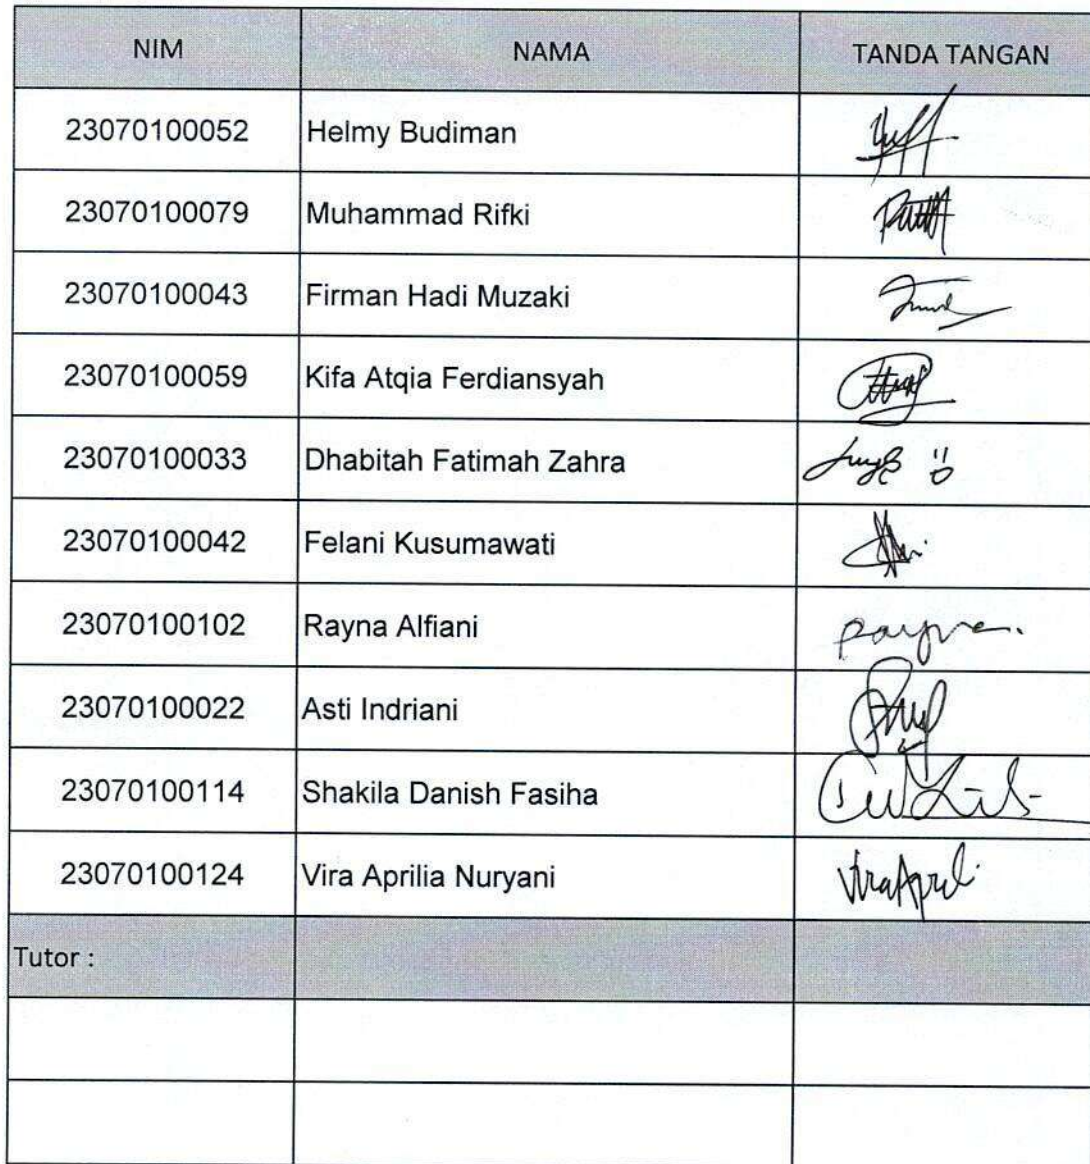 NIM NAMA TANDA TANGAN
23070100052 Helmy Budiman
23070100079 Muhammad Rifki
23070100043 Firman Hadi Muzaki
23070100059 Kifa Atqia Ferdiansyah
23070100033 Dhabitah Fatimah Zahra
23070100042 Felani Kusumawati
23070100102 Rayna Alfiani
23070100022 Asti Indriani
23070100114 Shakila Danish Fasiha
23070100124 Vira Aprilia Nuryani
Tutor :